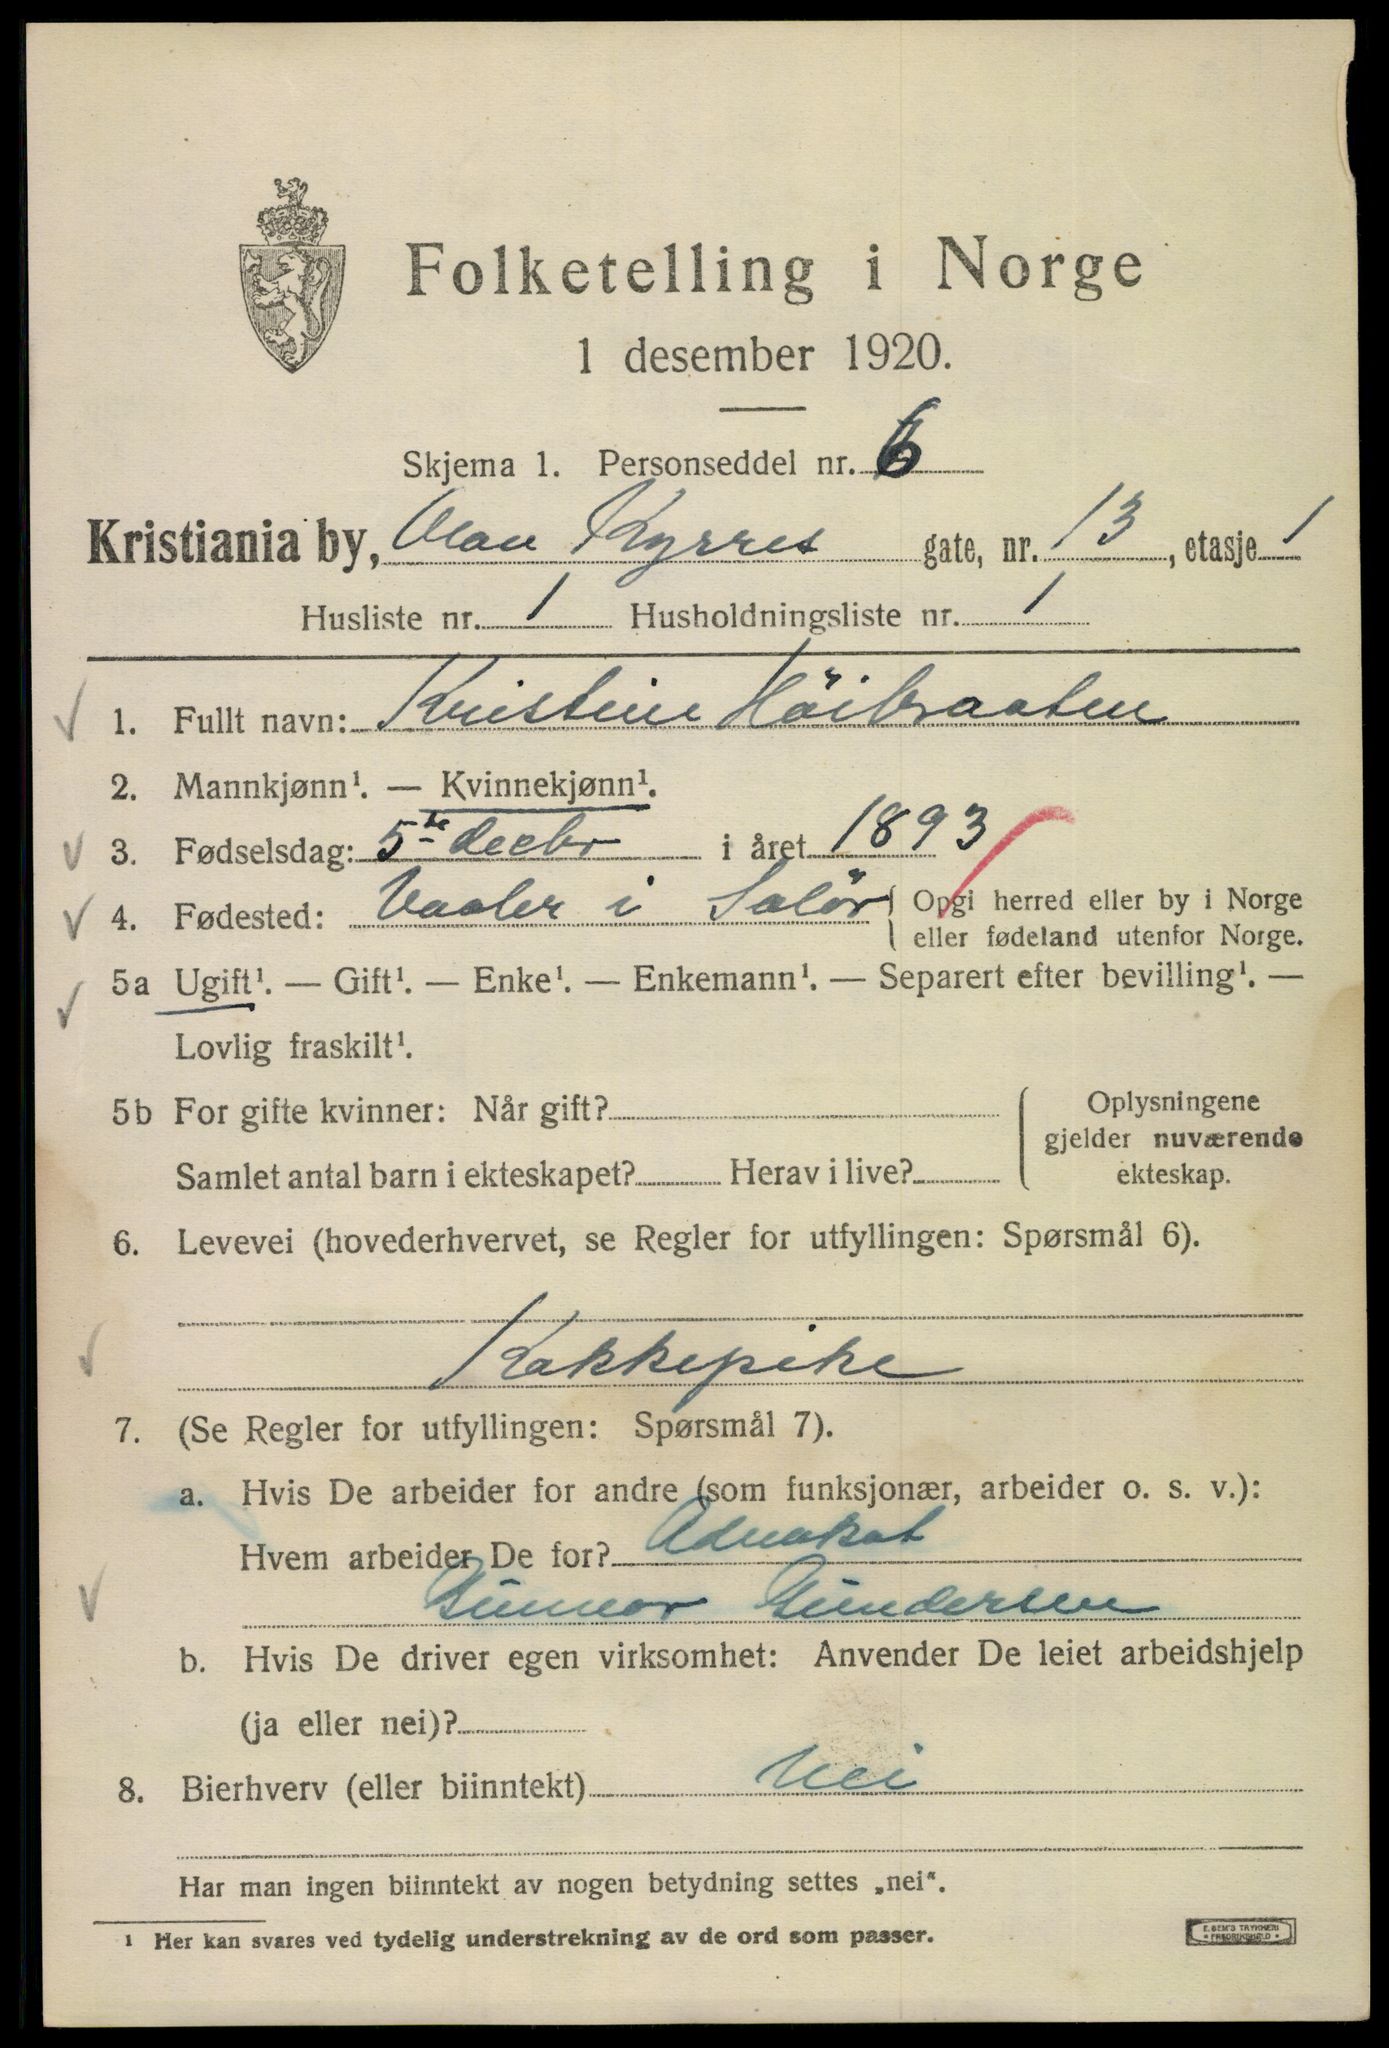 Folketelling i Norge
1 desember 1920.
Skjema 1. Personseddel nr. 6
Kristiania by, Olav Kyrres gate, nr. 13, etasje 1
Husliste nr. 1 Husholdningsliste nr. 1
1. Fullt navn: Kristine Höibraaten
2. Mannkjønn¹. — Kvinnekjønn¹.
3. Fødselsdag: 5te decbr i året 1893
4. Fødested: Vaaler i Solör { Opgi herred eller by i Norge
eller fødeland utenfor Norge.
5a Ugift¹. — Gift¹. — Enke¹. — Enkemann¹. — Separert efter bevilling¹. —
Lovlig fraskilt¹.
5b For gifte kvinner: Når gift? { Oplysningene
gjelder nuværende
Samlet antal barn i ekteskapet? Herav i live? ekteskap.
6. Levevei (hovederhvervet, se Regler for utfyllingen: Spørsmål 6).
Kokkepike
7. (Se Regler for utfyllingen: Spørsmål 7).
a. Hvis De arbeider for andre (som funksjonær, arbeider o. s. v.):
Hvem arbeider De for? Advokat
Gunnar Gundersen
b. Hvis De driver egen virksomhet: Anvender De leiet arbeidshjelp
(ja eller nei)?
8. Bierhverv (eller biinntekt) Nei
Har man ingen biinntekt av nogen betydning settes „nei".
¹ Her kan svares ved tydelig understrekning av de ord som passer.
E. SEM'S TRYKKERI
* FREDRIKSHALD *